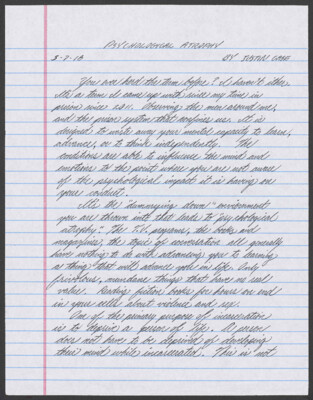 PSYCHOLOGICAL ATROPHY
5-7-18 BY JUSTIN CASE
You ever heard the term before? I haven't either.
It's a term I came up with since my time in
prison since 2011. Observing the men around me,
and the prison system that confines us. It is
designed to waste away your mental capacity to learn,
advance, or to think independently. The
conditions are able to influence the mind and
emotions to the point where you are not aware
of the psychological impact it is having on
your conduct.
It's the "dumbing down" environment
you are thrown into that leads to "psychological
atrophy." The T.V. programs, the books and
magazines, the topic of conversation all generally
have nothing to do with advancing you to learning
a thing that will advance you in life. Only
frivolous, mundane things that have no real
value. Reading fiction books for hours on end
in your cell about violence and sex.
One of the primary purpose of incarceration
is to deprive a person of life. A person
does not have to be deprived of developing
their mind while incarcerated. This is not